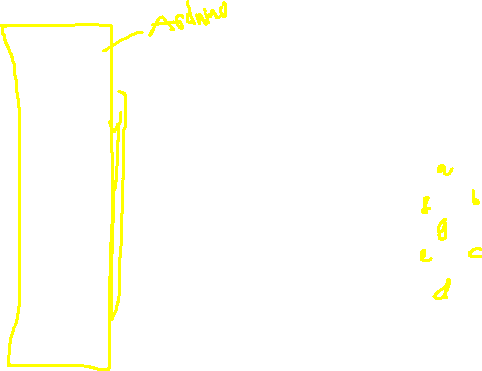 Arduino
a
f b
g
e c
d